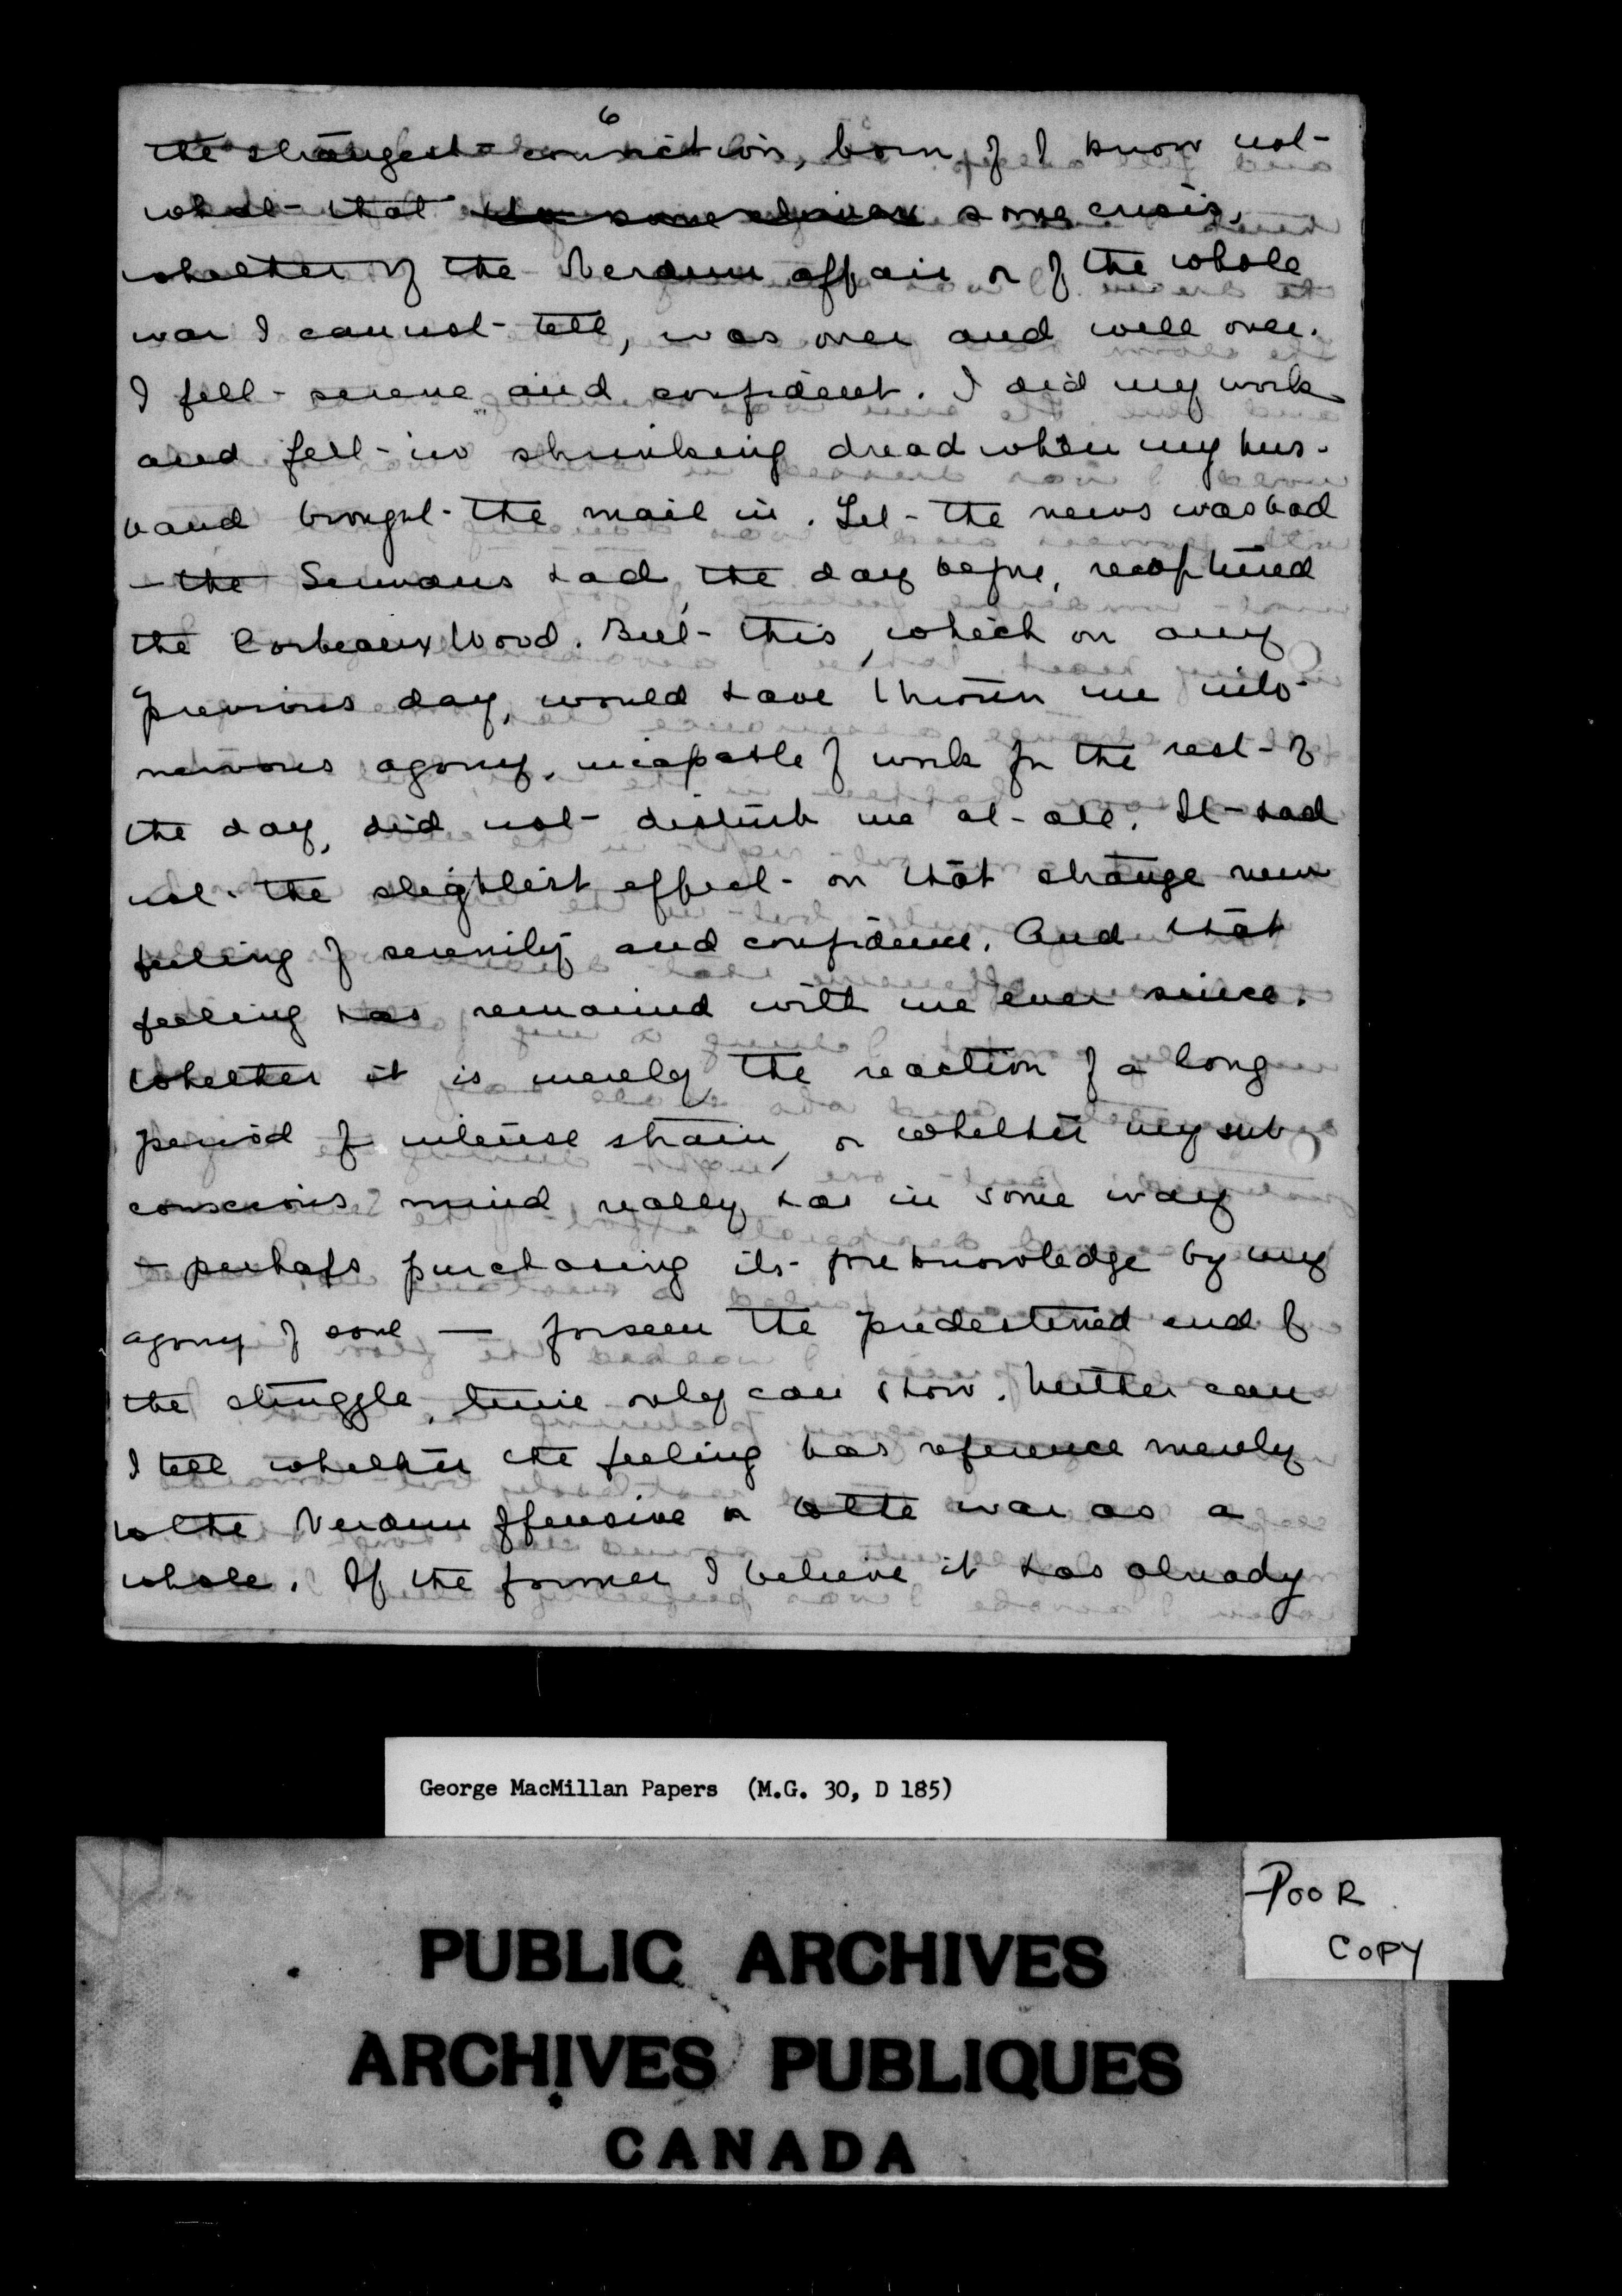 6
the strangest conviction, born of I know not
what that some crisis,
whether of the Verdun affair or of the whole
war I cannot tell, was over and well over.
I felt serene and confident. I did my work
and felt no shrinking dread when my hus-
band brought the mail in. Yet the news was bad
- the Germans had, the day before, recaptured
the Corbeaux Wood. But this, which on any
previous day, would have thrown me into
nervous agony, incapable of work for the rest of
the day, did not disturb me at all. It had
not the slightest effect on that strange new
feeling of serenity and confidence. And that
feeling has remained with me ever since.
Whether it is merely the reaction of a long
period of intense strain, or whether my sub
conscious mind really has in some way
- perhaps purchasing its foreknowledge by my
agony of soul — forseen the predestined end of
the struggle, time only can show. Neither can
I tell whether the feeling has reference merely
to the Verdun offensive or to the war as a
whole. If the former I believe it has already
George MacMillan Papers (M.G. 30, D 185)
POOR
COPY
PUBLIC ARCHIVES
ARCHIVES PUBLIQUES
CANADA